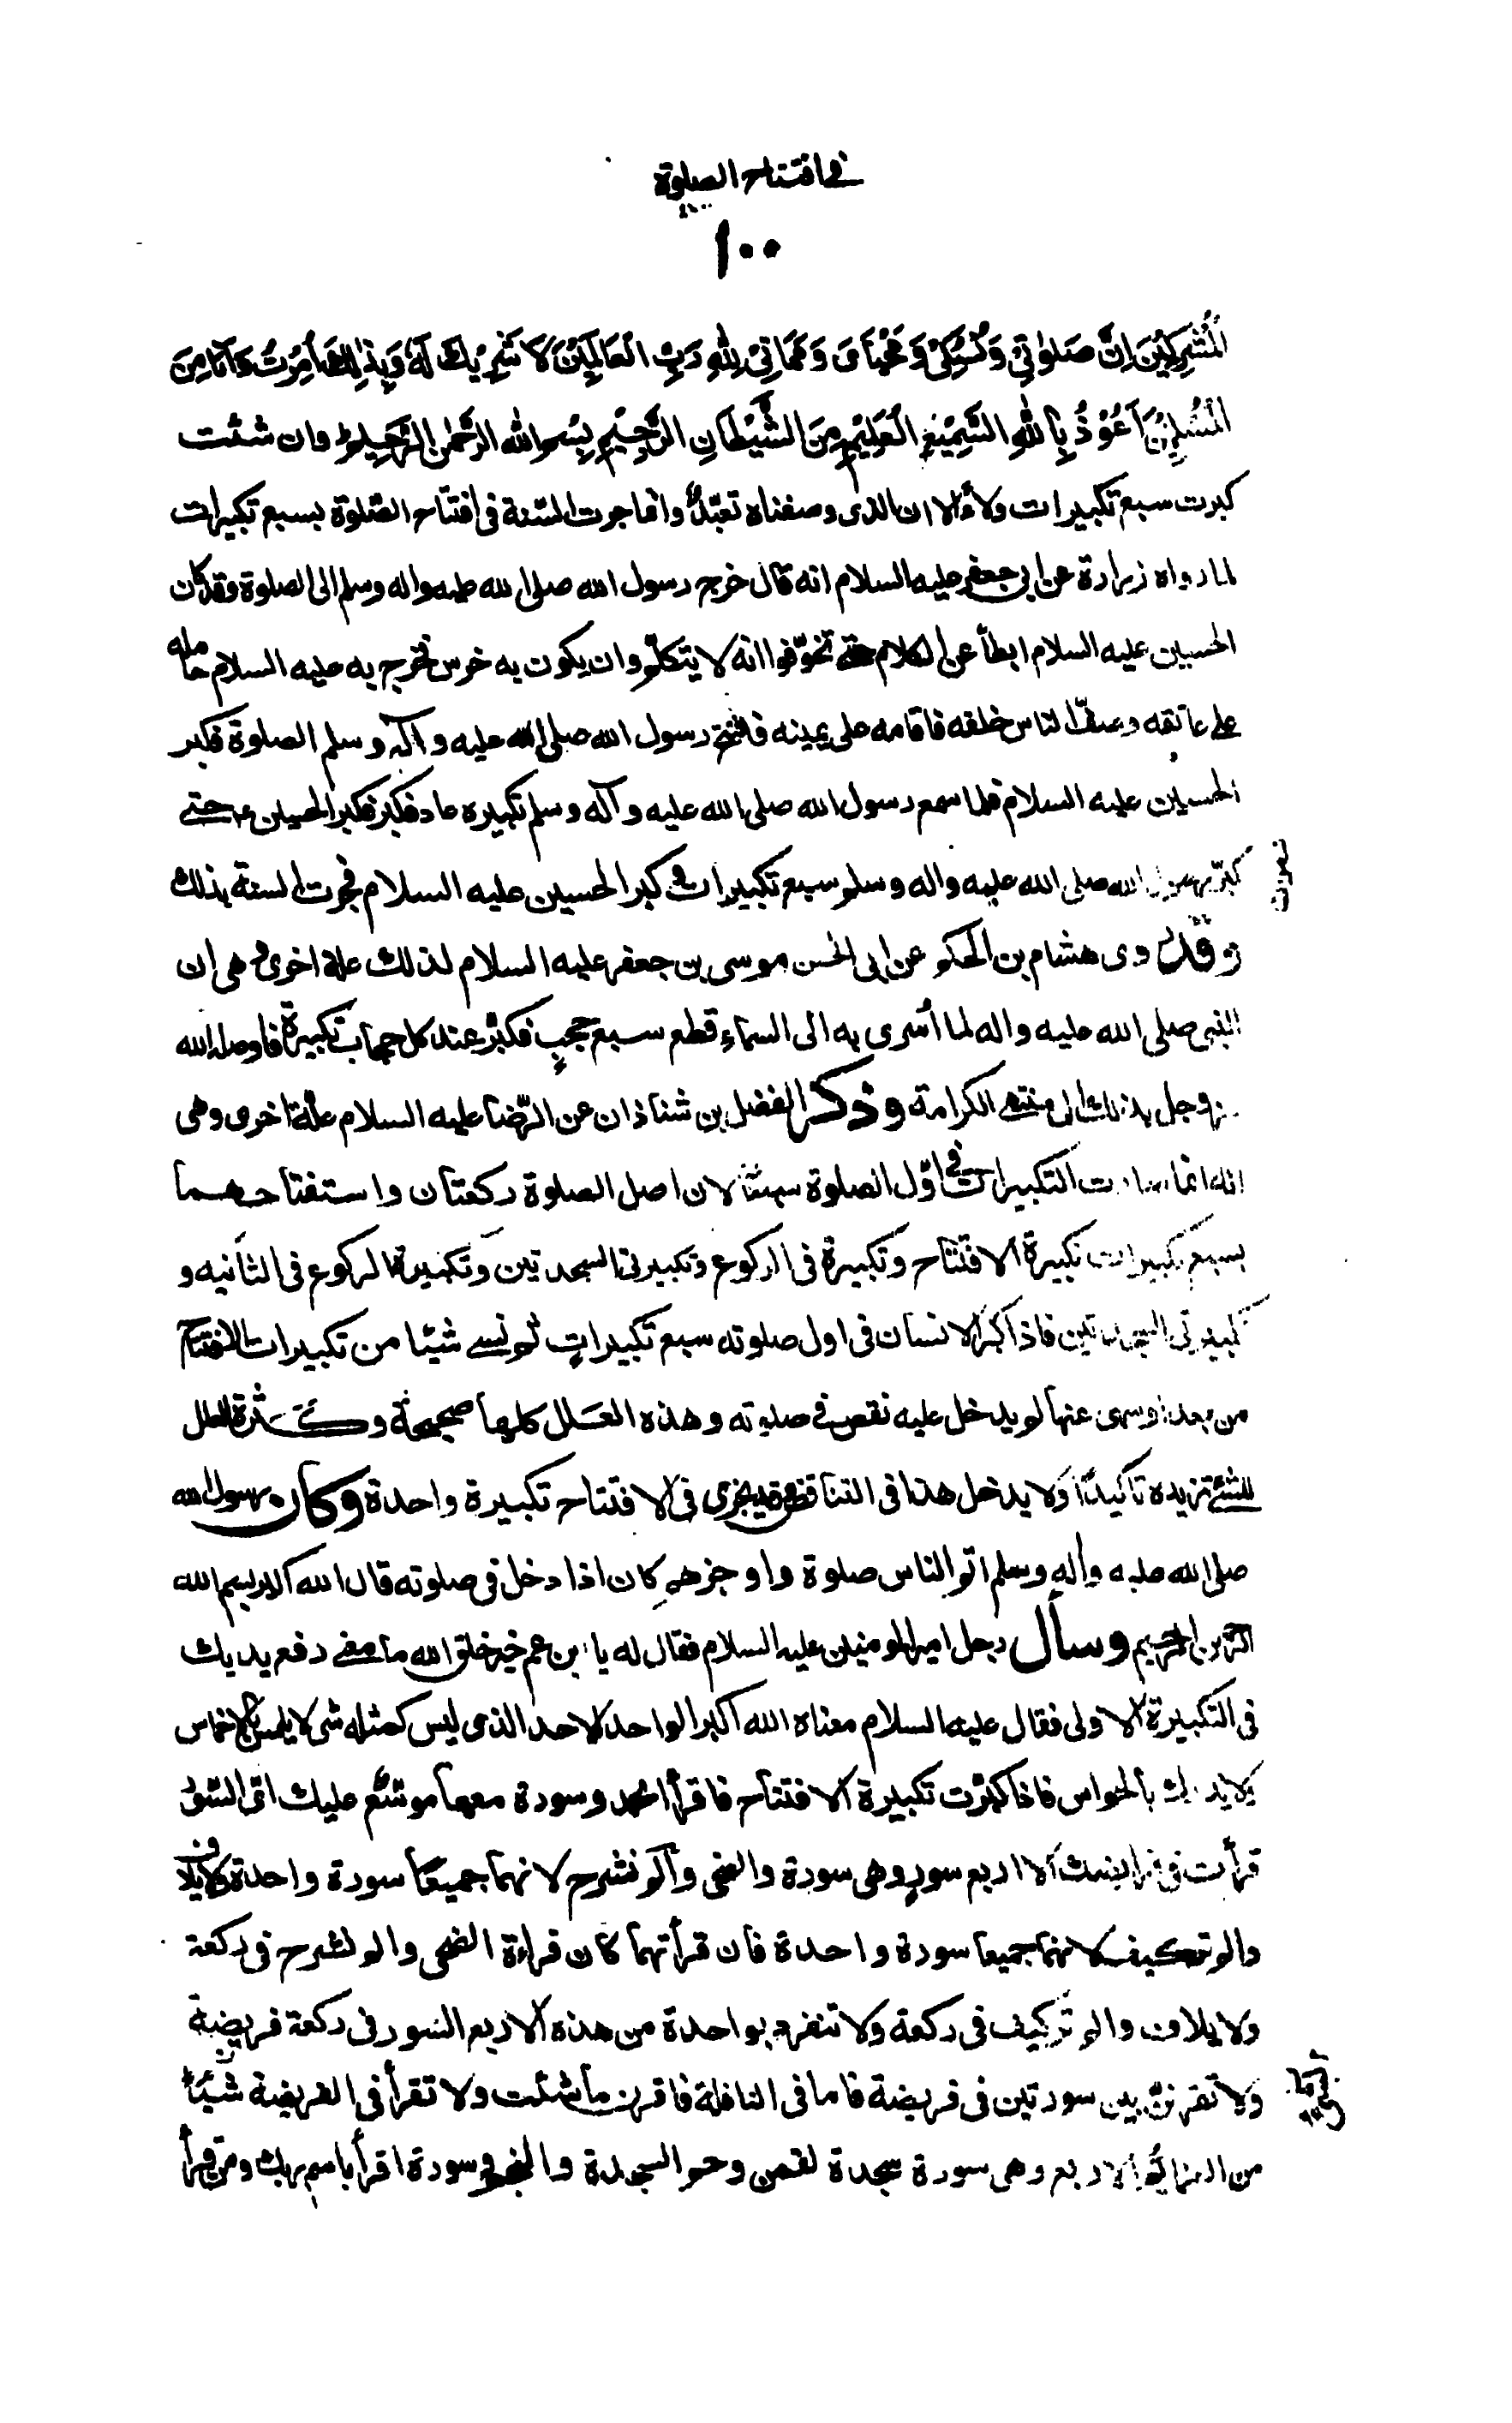 في افتتاح الصلوة
١٠٠
الْمُشْرِكِيْنَ اِنَّ صَلٰوتِيْ وَنُسُكِيْ وَمَحْيَايَ وَمَمَاتِيْ لِلّٰهِ رَبِّ الْعَالَمِيْنَ لَا شَرِيْكَ لَهٗ وَبِذٰلِكَ اُمِرْتُ وَاَنَا مِنَ
الْمُسْلِمِيْنَ اَعُوْذُ بِاللّٰهِ السَّمِيْعِ الْعَلِيْمِ مِنَ الشَّيْطَانِ الرَّجِيْمِ بِسْمِ اللّٰهِ الرَّحْمٰنِ الرَّحِيْمِ وان شئت
كبرت سبع تكبيرات ولاءً الا ان الذى وصفناه تعبّدٌ وانما جرت السّنة فى افتتاح الصّلوة بسبع تكبيرات
لما رواه زرارة عن ابى جعفر عليه السلام انه قال خرج رسول الله صلى الله عليه واله وسلم الى الصلوة وقد كان
الحسين عليه السلام ابطأ عن الكلام حتى تخوّفوا انه لا يتكلّم وان يكون به خرس فخرج به عليه السلام حامله
على عاتقه وصفّ الناس خلفه فاقامه على يمينه فافتتح رسول الله صلى الله عليه وآله وسلم الصلوة فكبر
الحسين عليه السلام فلما سمع رسول الله صلى الله عليه وآله وسلم تكبيره عاد فكبر فكبر الحسين ع حتى
كبّر رسول الله صلى الله عليه واله وسلم سبع تكبيرات وكبر الحسين عليه السلام فجرت السنة بذلك
وقد روى هشام بن الحكم عن ابى الحسن موسى بن جعفر عليه السلام لذلك علة اخرى وهى ان
النبى صلى الله عليه واله لما أسرى به الى السماءِ قطع سبع حجبٍ فكبّر عند كل حجاب تكبيرة فاوصله الله
عزوجل بذلك الى منتهى الكرامة وذكر الفضل بن شاذان عن الرّضا عليه السلام علّة اخرى وهى
انه انما صارت التكبيرات فى اوّل الصلوة سبعًا لان اصل الصلوة ركعتان واستفتاحهما
بسبع تكبيرات تكبيرة الافتتاح وتكبيرة فى الركوع وتكبيرتى السجدتين وتكبيرة الركوع فى الثانيه و
تكبيرتى السجدتين فاذا كبّر الانسان فى اول صلوته سبع تكبيراتٍ ثم نسى شيئا من تكبيرات الافتتاح
من بعد اوسهى عنها لم يدخل عليه نقص فى صلوته وهذه العلل كلها صحيحة وكثرة العلل
للشئ تزيده تاكيدًا ولا يدخل هذا فى التناقض وقد يجزى فى الافتتاح تكبيرة واحدة وكان رسول الله
صلى الله عليه واله وسلم اتم الناس صلوة واوجزهم كان اذا دخل فى صلوته قال الله اكبر بسم الله
الرحمن الرحيم وسأل رجل امير المومنين عليه السلام فقال له يا ابن عم خير خلق الله ما معنى رفع يديك
فى التكبيرة الاولى فقال عليه السلام معناه الله اكبر الواحد الاحد الذى ليس كمثله شى لا يلمس بالاخماس
ولا يدرك بالحواس فاذا كبّرت تكبيرة الافتتاح فاقرأ الحمد وسورة معها موسّع عليك اىّ السّور
قرأت فى فرايضك الا اربع سور وهى سورة والضحى والم نشرح لانهما جميعًا سورة واحدة ولايلاف
والم تركيف لانهما جميعا سورة واحدة فان قرأتهما كان قراءة الضحى والم نشرح فى ركعة
ولايلاف والم تركيف فى ركعة ولا تنفرد بواحدة من هذه الاربع السور فى ركعة فريضة
ولا تقرننّ بين سورتين فى فريضة فاما فى النافلة فاقرن ماشئت ولا تقرأ فى الفريضة شيئًا
من العزائم الاربع وهى سورة سجدة لقمن وحم السجدة والنجم وسورة اقرأ باسم ربك ومن قرأ